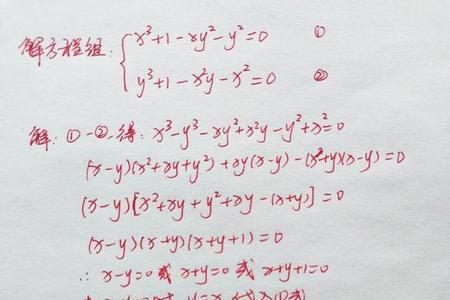 解方程组: { x³+1-xy²-y²=0 ①
y³+1-x²y-x²=0 ②
解: ①-②得: x³-y³-xy²+x²y-y²+x²=0
(x-y)(x²+xy+y²)+xy(x-y)-(x+y)(x-y)=0
(x-y)[x²+xy+y²+xy-(x+y)]=0
(x-y)(x+y)(x+y+1)=0
∴ x-y=0 或 x+y=0 或 x+y+1=0
y=x 代入①式